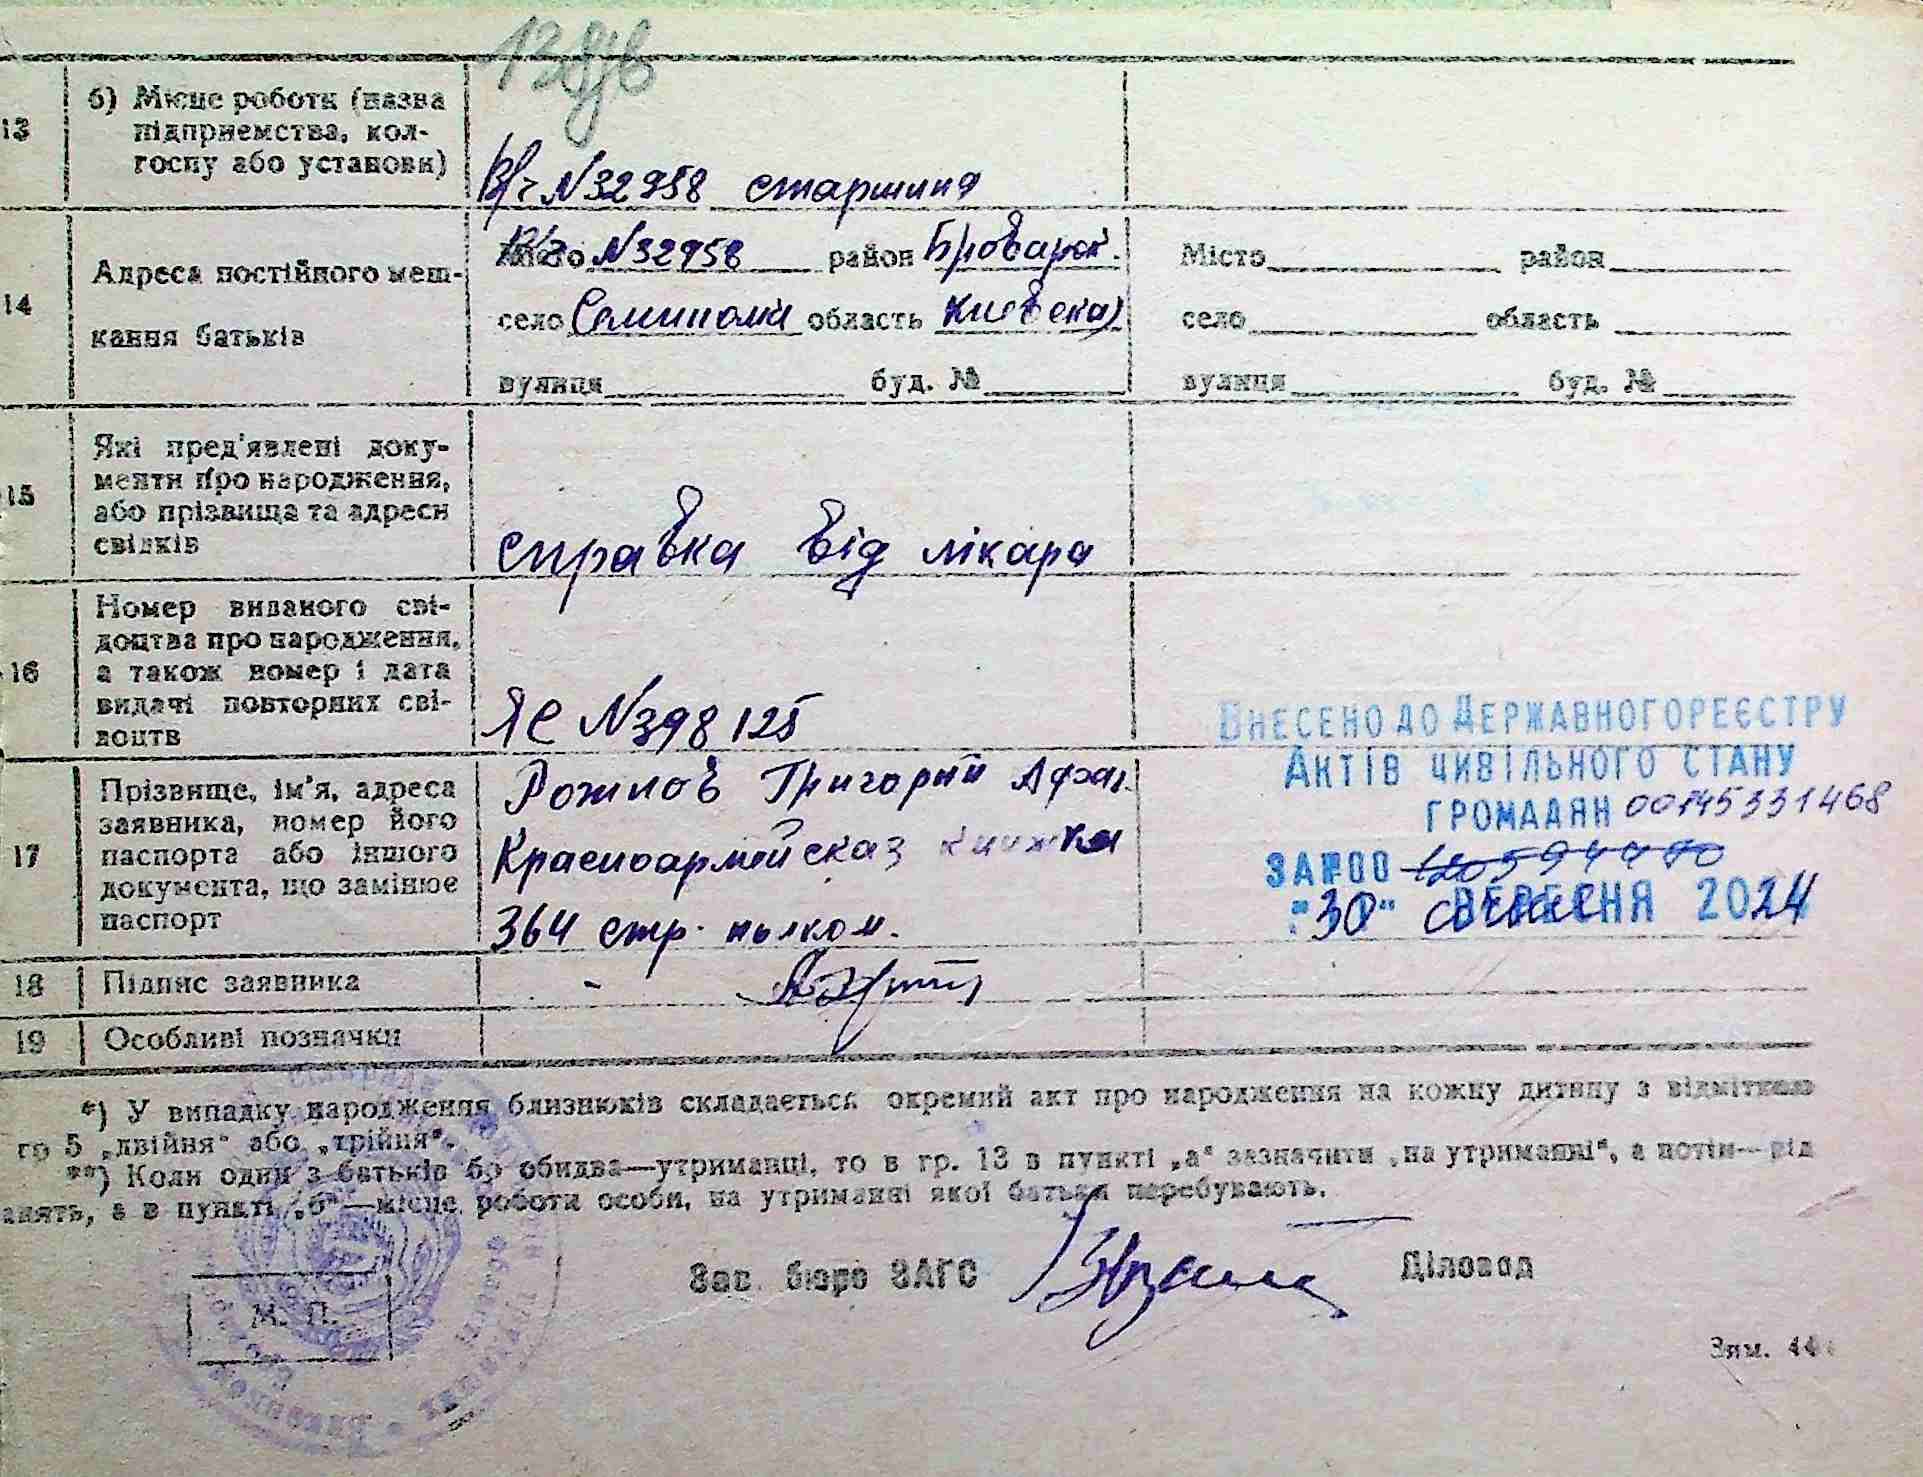 13 б) Місце роботи (назва підприємства, колгоспу або установи)
В/ч N32958 старшина
14 Адреса постійного мешкання батьків
В/ч N32958 район Броварск.
село Семиполки область Киевская
вулиця буд. №
Місто район
село область
вулиця буд. №
15 Які пред'явлені документи про народження, або прізвища та адреси свідків
справка від лікара
16 Номер виданого свідоцтва про народження, а також номер і дата видачі повторних свідоцтв
ЯС N398125
ВНЕСЕНО ДО ДЕРЖАВНОГО РЕЄСТРУ
АКТІВ ЦИВІЛЬНОГО СТАНУ
ГРОМАДЯН 00145331468
ЗА №00
"30" ВЕРЕСНЯ 2024
17 Прізвище, ім'я, адреса заявника, номер його паспорта або іншого документа, що замінює паспорт
Григорий Афан.
Красноармейская книжка
364 стр. полком.
18 Підпис заявника
19 Особливі позначки
*) У випадку народження близнюків складається окремий акт про народження на кожну дитину з відміткою
гр 5 „двійня" або „трійня".
**) Коли один з батьків бо обидва—утриманці, то в гр. 13 в пункті „а" зазначити „на утриманні", а потім—рід
анять, а в пункті „б"—місце роботи особи, на утриманні якої батьки перебувають.
Зав. бюро ЗАГС Діловод
М. П.
Зам. 44